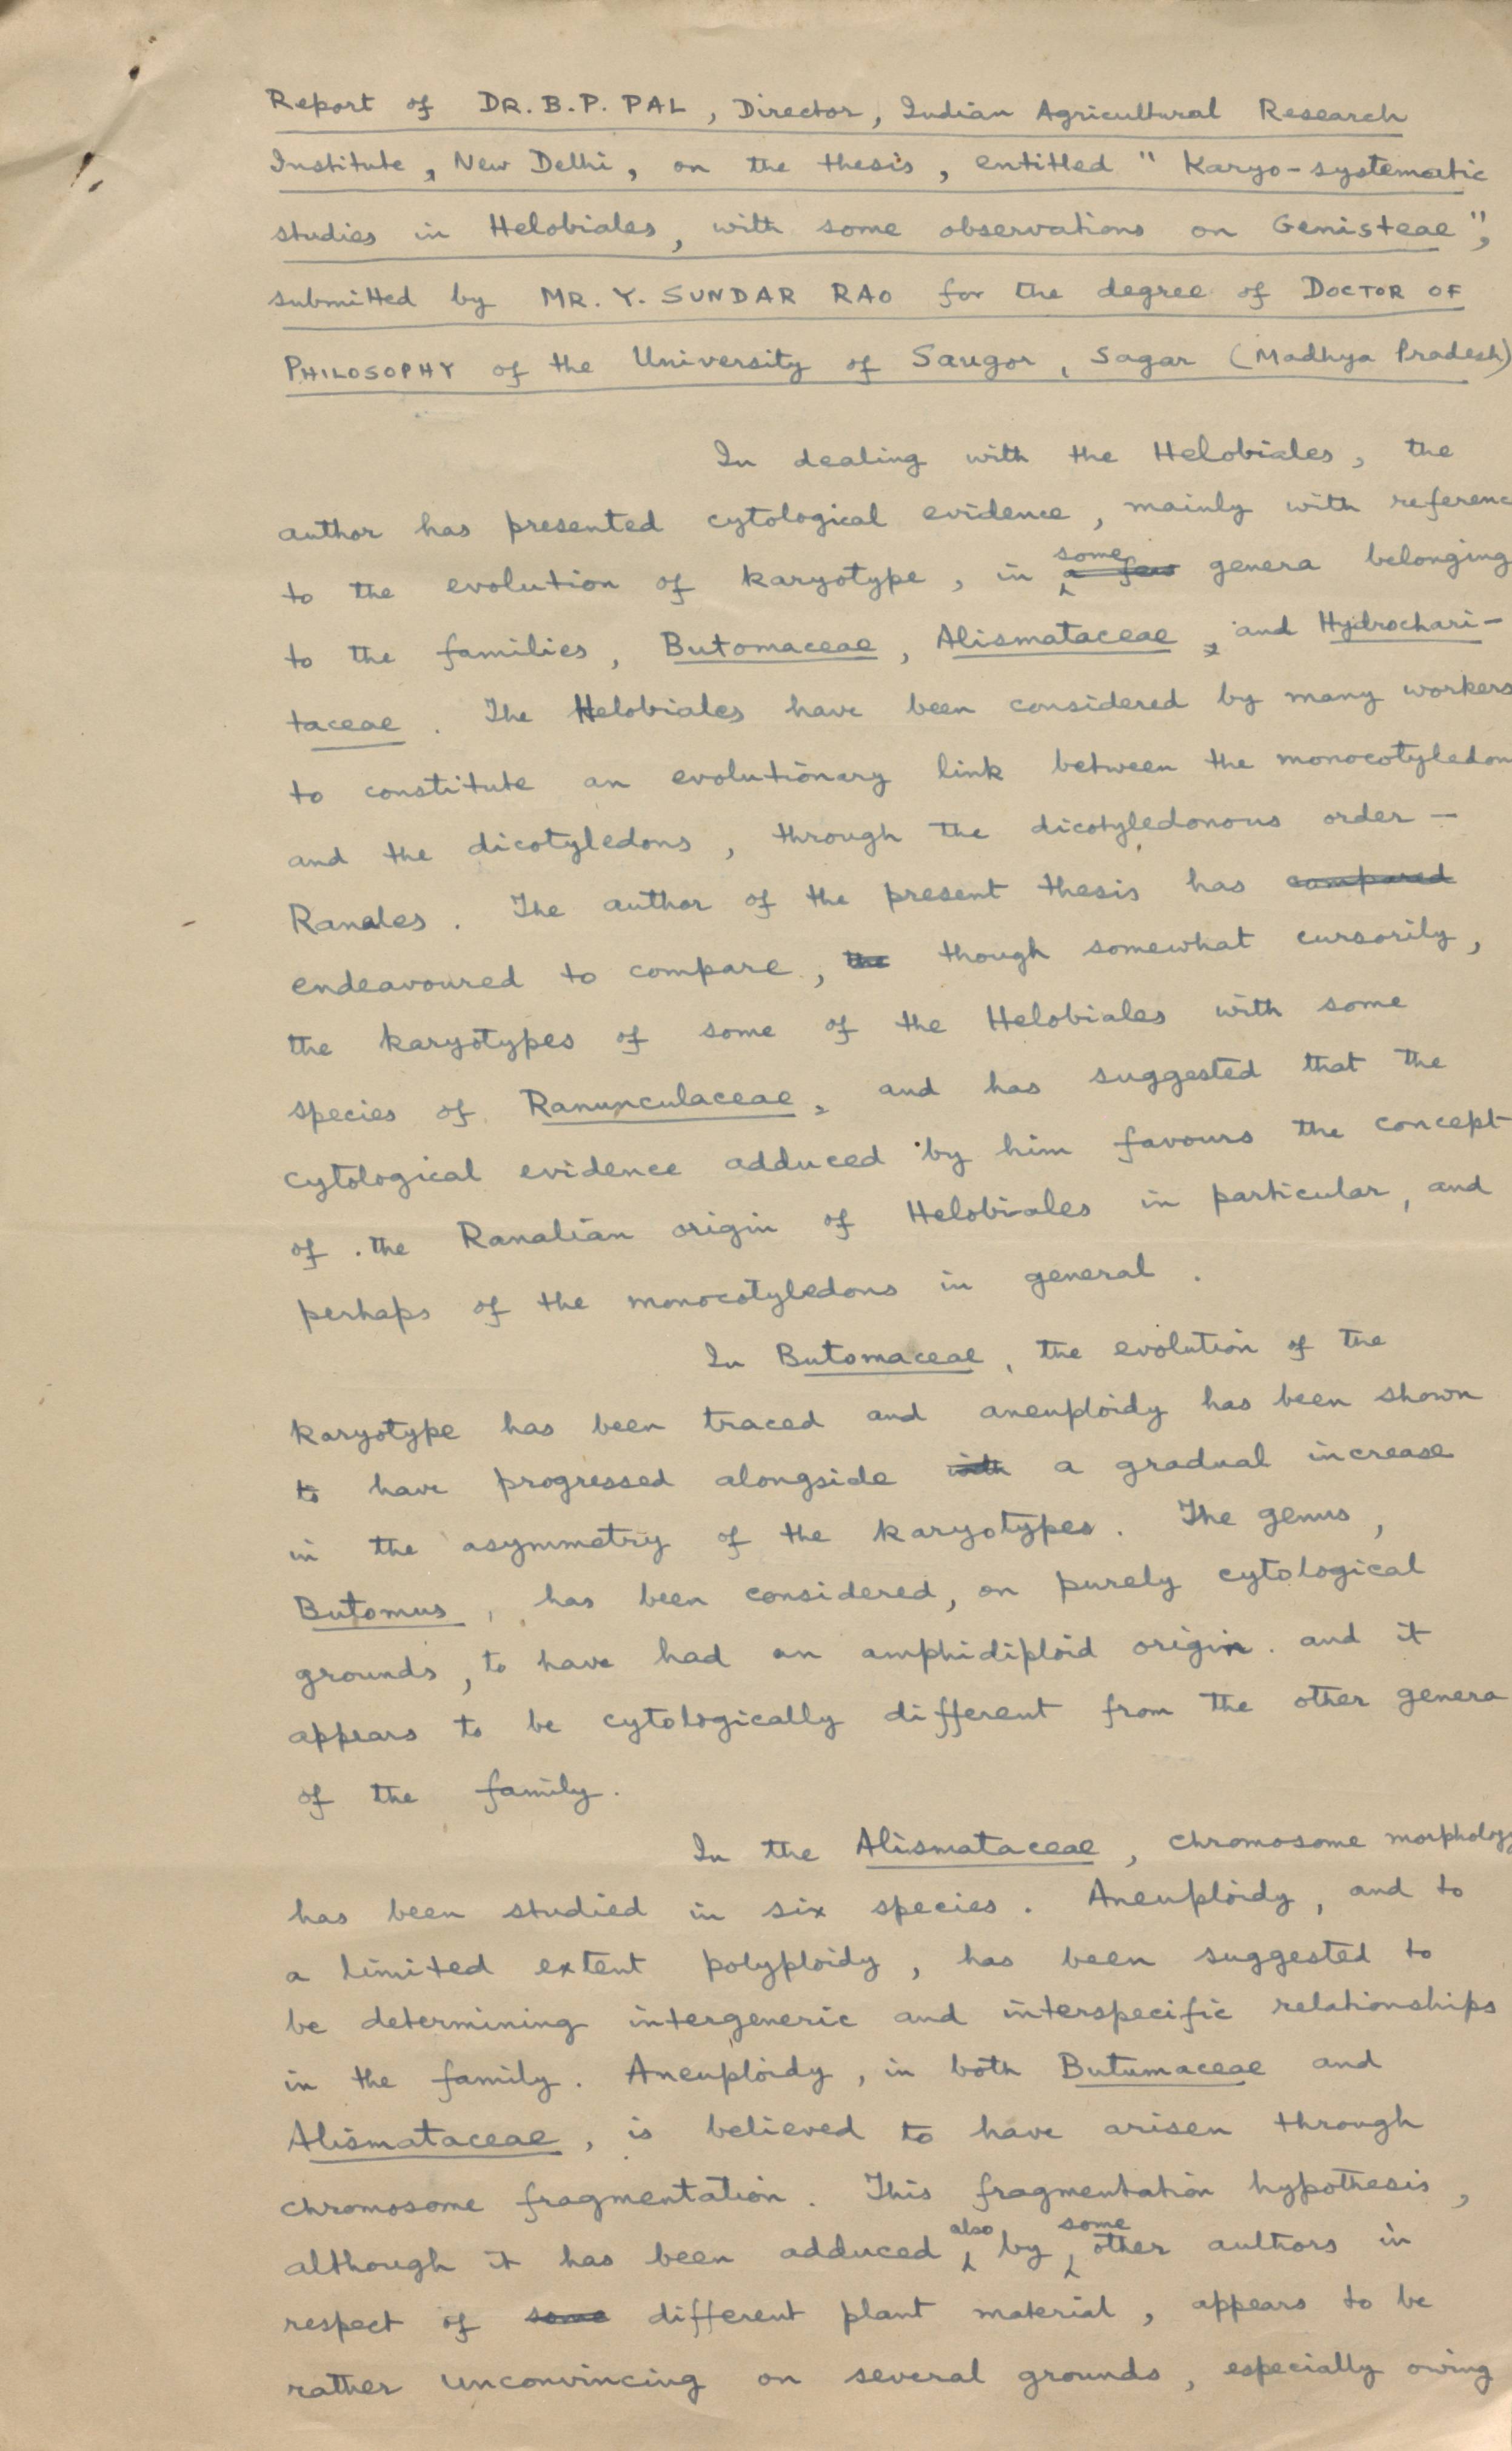 Report of DR. B. P. PAL, Director, Indian Agricultural Research
Institute, New Delhi, on the thesis, entitled "Karyo-systematic
studies in Helobiales, with some observations on Genisteae",
submitted by MR. Y. SUNDAR RAO for the degree of DOCTOR OF
PHILOSOPHY of the University of Saugor, Sagar (Madhya Pradesh)
In dealing with the Helobiales, the
author has presented cytological evidence, mainly with referenc
to the evolution of karyotype, in some a few genera belonging
to the families, Butomaceae, Alismataceae, and Hydrochari-
taceae. The Helobiales have been considered by many workers
to constitute an evolutionary link between the monocotyledon
and the dicotyledons, through the dicotyledonous order —
Ranales. The author of the present thesis has compared
endeavoured to compare, the though somewhat cursorily,
the karyotypes of some of the Helobiales with some
species of Ranunculaceae, and has suggested that the
cytological evidence adduced by him favours the concept
of the Ranalian origin of Helobiales in particular, and
perhaps of the monocotyledons in general.
In Butomaceae, the evolution of the
karyotype has been traced and aneuploidy has been shown
to have progressed alongside with a gradual increase
in the asymmetry of the karyotypes. The genus,
Butomus, has been considered, on purely cytological
grounds, to have had an amphidiploid origin and it
appears to be cytologically different from the other genera
of the family.
In the Alismataceae, chromosome morphology
has been studied in six species. Aneuploidy, and to
a limited extent polyploidy, has been suggested to
be determining intergeneric and interspecific relationships
in the family. Aneuploidy, in both Butumaceae and
Alismataceae, is believed to have arisen through
chromosome fragmentation. This fragmentation hypothesis,
although it has been adduced also by some other authors in
respect of some different plant material, appears to be
rather unconvincing on several grounds, especially owing